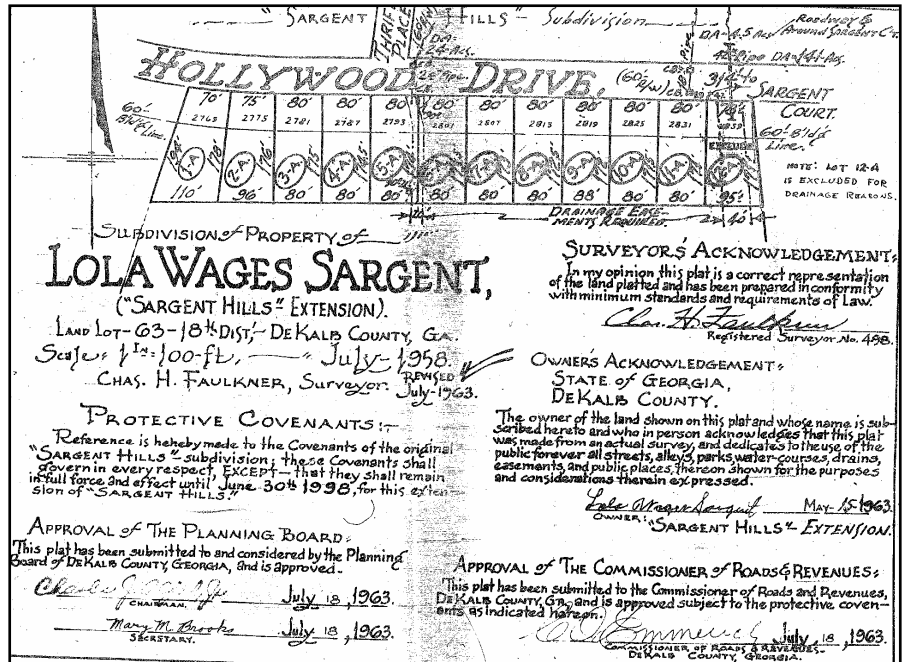 "SARGENT HILLS" Subdivision
THRIFT PLACE
Roadway &
Around SARGENT CT.
HOLLYWOOD DRIVE,
(60' R/W)
SARGENT
COURT.
70' 75' 80' 80' 80' 80' 80' 80' 80' 80' 80'
2769 2775 2781 2787 2793 2801 2807 2813 2819 2825 2831 2839
60' B'ld'g Line.
60' B'ld'g
Line.
1-A 2-A 3-A 4-A 5-A 6-A 7-A 8-A 9-A 10-A 11-A 12-A
110' 96' 80' 80' 80' 80' 80' 80' 88' 80' 80' 95'
NOTE: LOT 12-A
IS EXCLUDED FOR
DRAINAGE REASONS.
DRAINAGE EASE-
MENTS REQUIRED.
40'
SUBDIVISION of PROPERTY of
LOLA WAGES SARGENT,
("SARGENT HILLS" EXTENSION).
LAND LOT-63-18th DIST,- DEKALB COUNTY, GA.
Scale" 1 In=100-ft, July-1958.
CHAS. H. FAULKNER, Surveyor.
REVISED
July-1963.
PROTECTIVE COVENANTS:-
Reference is hereby made to the Covenants of the original
"SARGENT HILLS" subdivision; these Covenants shall
govern in every respect, EXCEPT- that they shall remain
in full force and effect until June 30th 1998, for this exten-
sion of "SARGENT HILLS."
APPROVAL of THE PLANNING BOARD:
This plat has been submitted to and considered by the Planning
Board of DEKALB COUNTY, GEORGIA, and is approved-
July 18, 1963.
CHAIRMAN.
Mary M. Brooks July 18, 1963.
SECRETARY.
SURVEYOR'S ACKNOWLEDGEMENT:
In my opinion this plat is a correct representation
of the land platted and has been prepared in conformity
with minimum standards and requirements of Law.
Chas. H. Faulkner
Registered Surveyor No. 498.
OWNER'S ACKNOWLEDGEMENT:
STATE OF GEORGIA,
DEKALB COUNTY.
The owner of the land shown on this plat and whose name is sub-
scribed hereto and who in person acknowledges that this plat
was made from an actual survey, and dedicates to the use of the
public forever all streets, alleys, parks, water-courses, drains,
easements, and public places, thereon shown for the purposes
and considerations therein expressed.
Lola Wages Sargent MAY-15-1963.
OWNER: "SARGENT HILLS" EXTENSION.
APPROVAL of THE COMMISSIONER of ROADS & REVENUES:
This plat has been submitted to the Commissioner of Roads and Revenues,
DEKALB COUNTY, GA., and is approved subject to the protective coven-
ents as indicated hereon.
July, 18, 1963.
COMMISSIONER OF ROADS & REVENUES-
DEKALB COUNTY, GEORGIA.